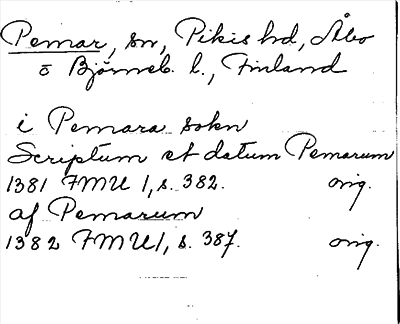 Pemar, sn, Pikis hd, Åbo
o Björneb. l., Finland
i Pemara sokn
Scriptum et datum Pemarum
1381 FMU 1, s. 382. orig.
af Pemarum
1382 FMU 1, s. 387. orig.